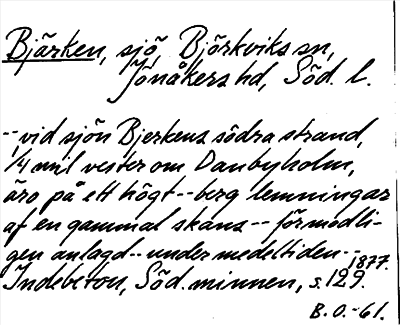 Bjärken, sjö, Björkviks sn,
Jönåkers hd, Söd. l.
-- vid sjön Bjerkens södra strand,
1/4 mil vester om Danbyholm,
äro på ett högt -- berg lemningar
af en gammal skans -- förmodli-
gen anlagd -- under medeltiden --
1877.
Indebetou, Söd. minnen, s. 129.
B. O. -61.